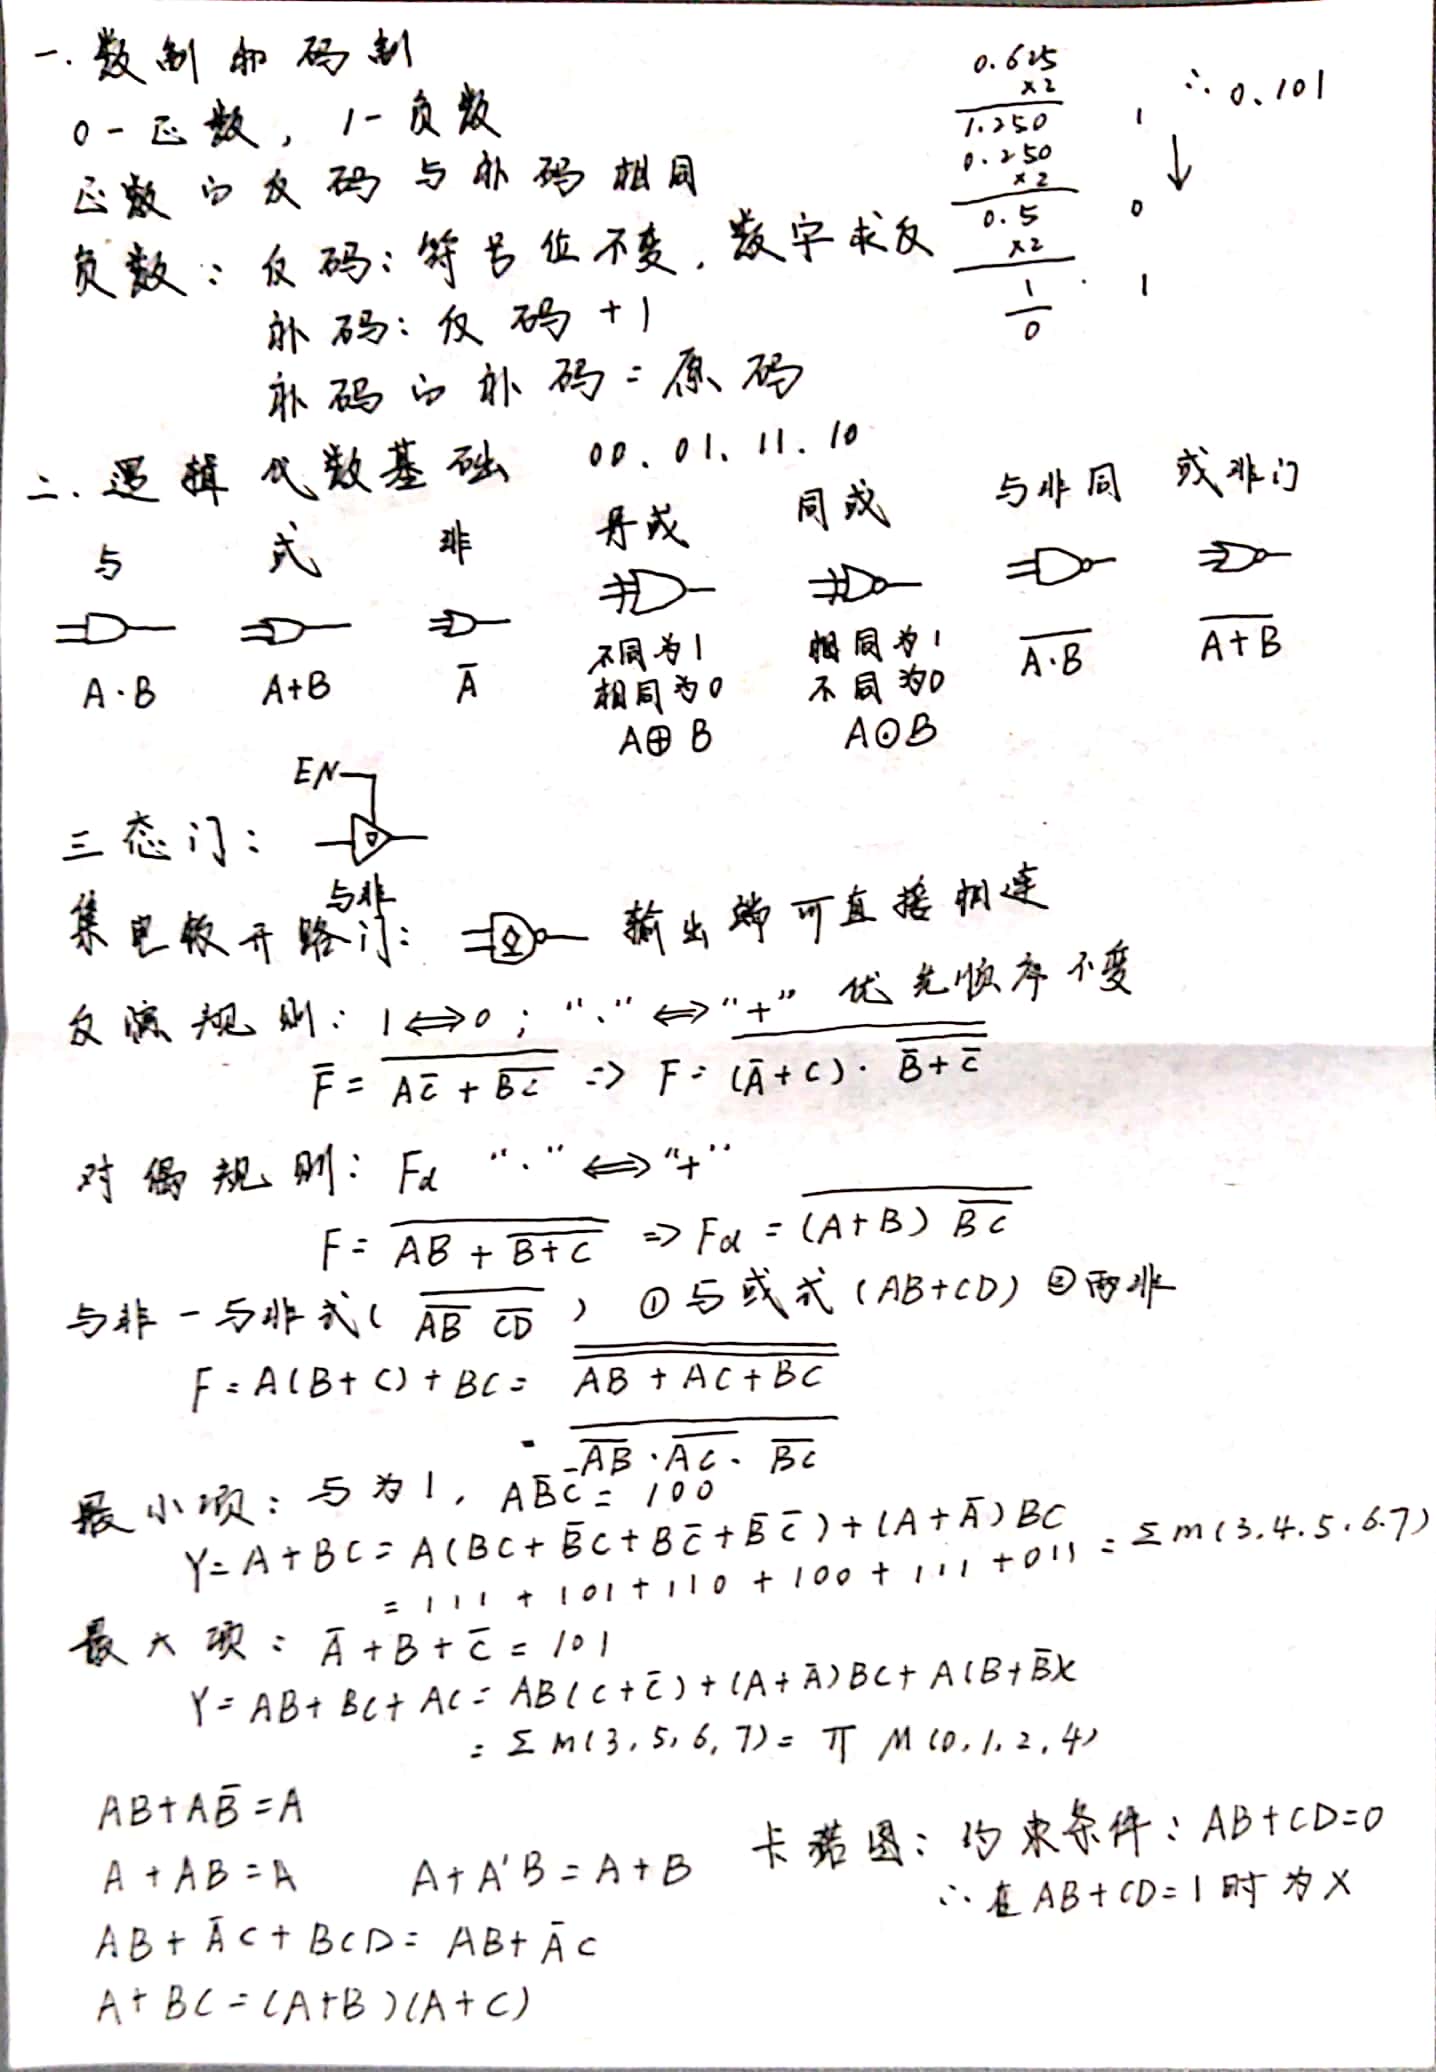 一. 数制和码制
0-正数, 1-负数
正数的反码与补码相同
负数: 反码: 符号位不变, 数字求反
补码: 反码+1
补码的补码=原码
0.625
×2
1.250 1
0.250
×2
0.5 0
×2
1 1
0
∴ 0.101
二. 逻辑代数基础 00、01、11、10
与 或 非 异或 同或 与非门 或非门
A·B A+B Ā 不同为1 相同为1 \overline{A·B} \overline{A+B}
相同为0 不同为0
A⊕B A⊙B
EN
三态门:
与非
集电极开路门: 输出端可直接相连
反演规则: 1⇔0; "·"⇔"+" 优先顺序不变
\overline{F} = \overline{A\overline{C} + \overline{BC}} => F = \overline{(\overline{A}+C)· \overline{\overline{\overline{B}+\overline{C}}}}
对偶规则: Fd "·"⇔"+"
F = \overline{AB + \overline{B+C}} => Fd = \overline{(A+B) \overline{BC}}
与非-与非式( \overline{\overline{AB} \overline{CD}} ) ①与或式(AB+CD) ②两非
F = A(B+C)+BC = \overline{\overline{AB+AC+BC}}
= \overline{\overline{AB}·\overline{AC}·\overline{BC}}
最小项: 与为1, A\overline{B}\overline{C} = 100
Y=A+BC=A(BC+\overline{B}C+B\overline{C}+\overline{B}\overline{C})+(A+\overline{A})BC
=111+101+110+100+111+011 = Σm(3.4.5.6.7)
最大项: \overline{A}+B+\overline{C}=101
Y=AB+BC+AC=AB(C+\overline{C})+(A+\overline{A})BC+A(B+\overline{B})C
=Σm(3,5,6,7)=π M(0,1,2,4)
AB+A\overline{B}=A
A+AB=A A+A'B=A+B
AB+\overline{A}C+BCD=AB+\overline{A}C
A+BC=(A+B)(A+C)
卡诺图: 约束条件: AB+CD=0
∴在AB+CD=1时为X